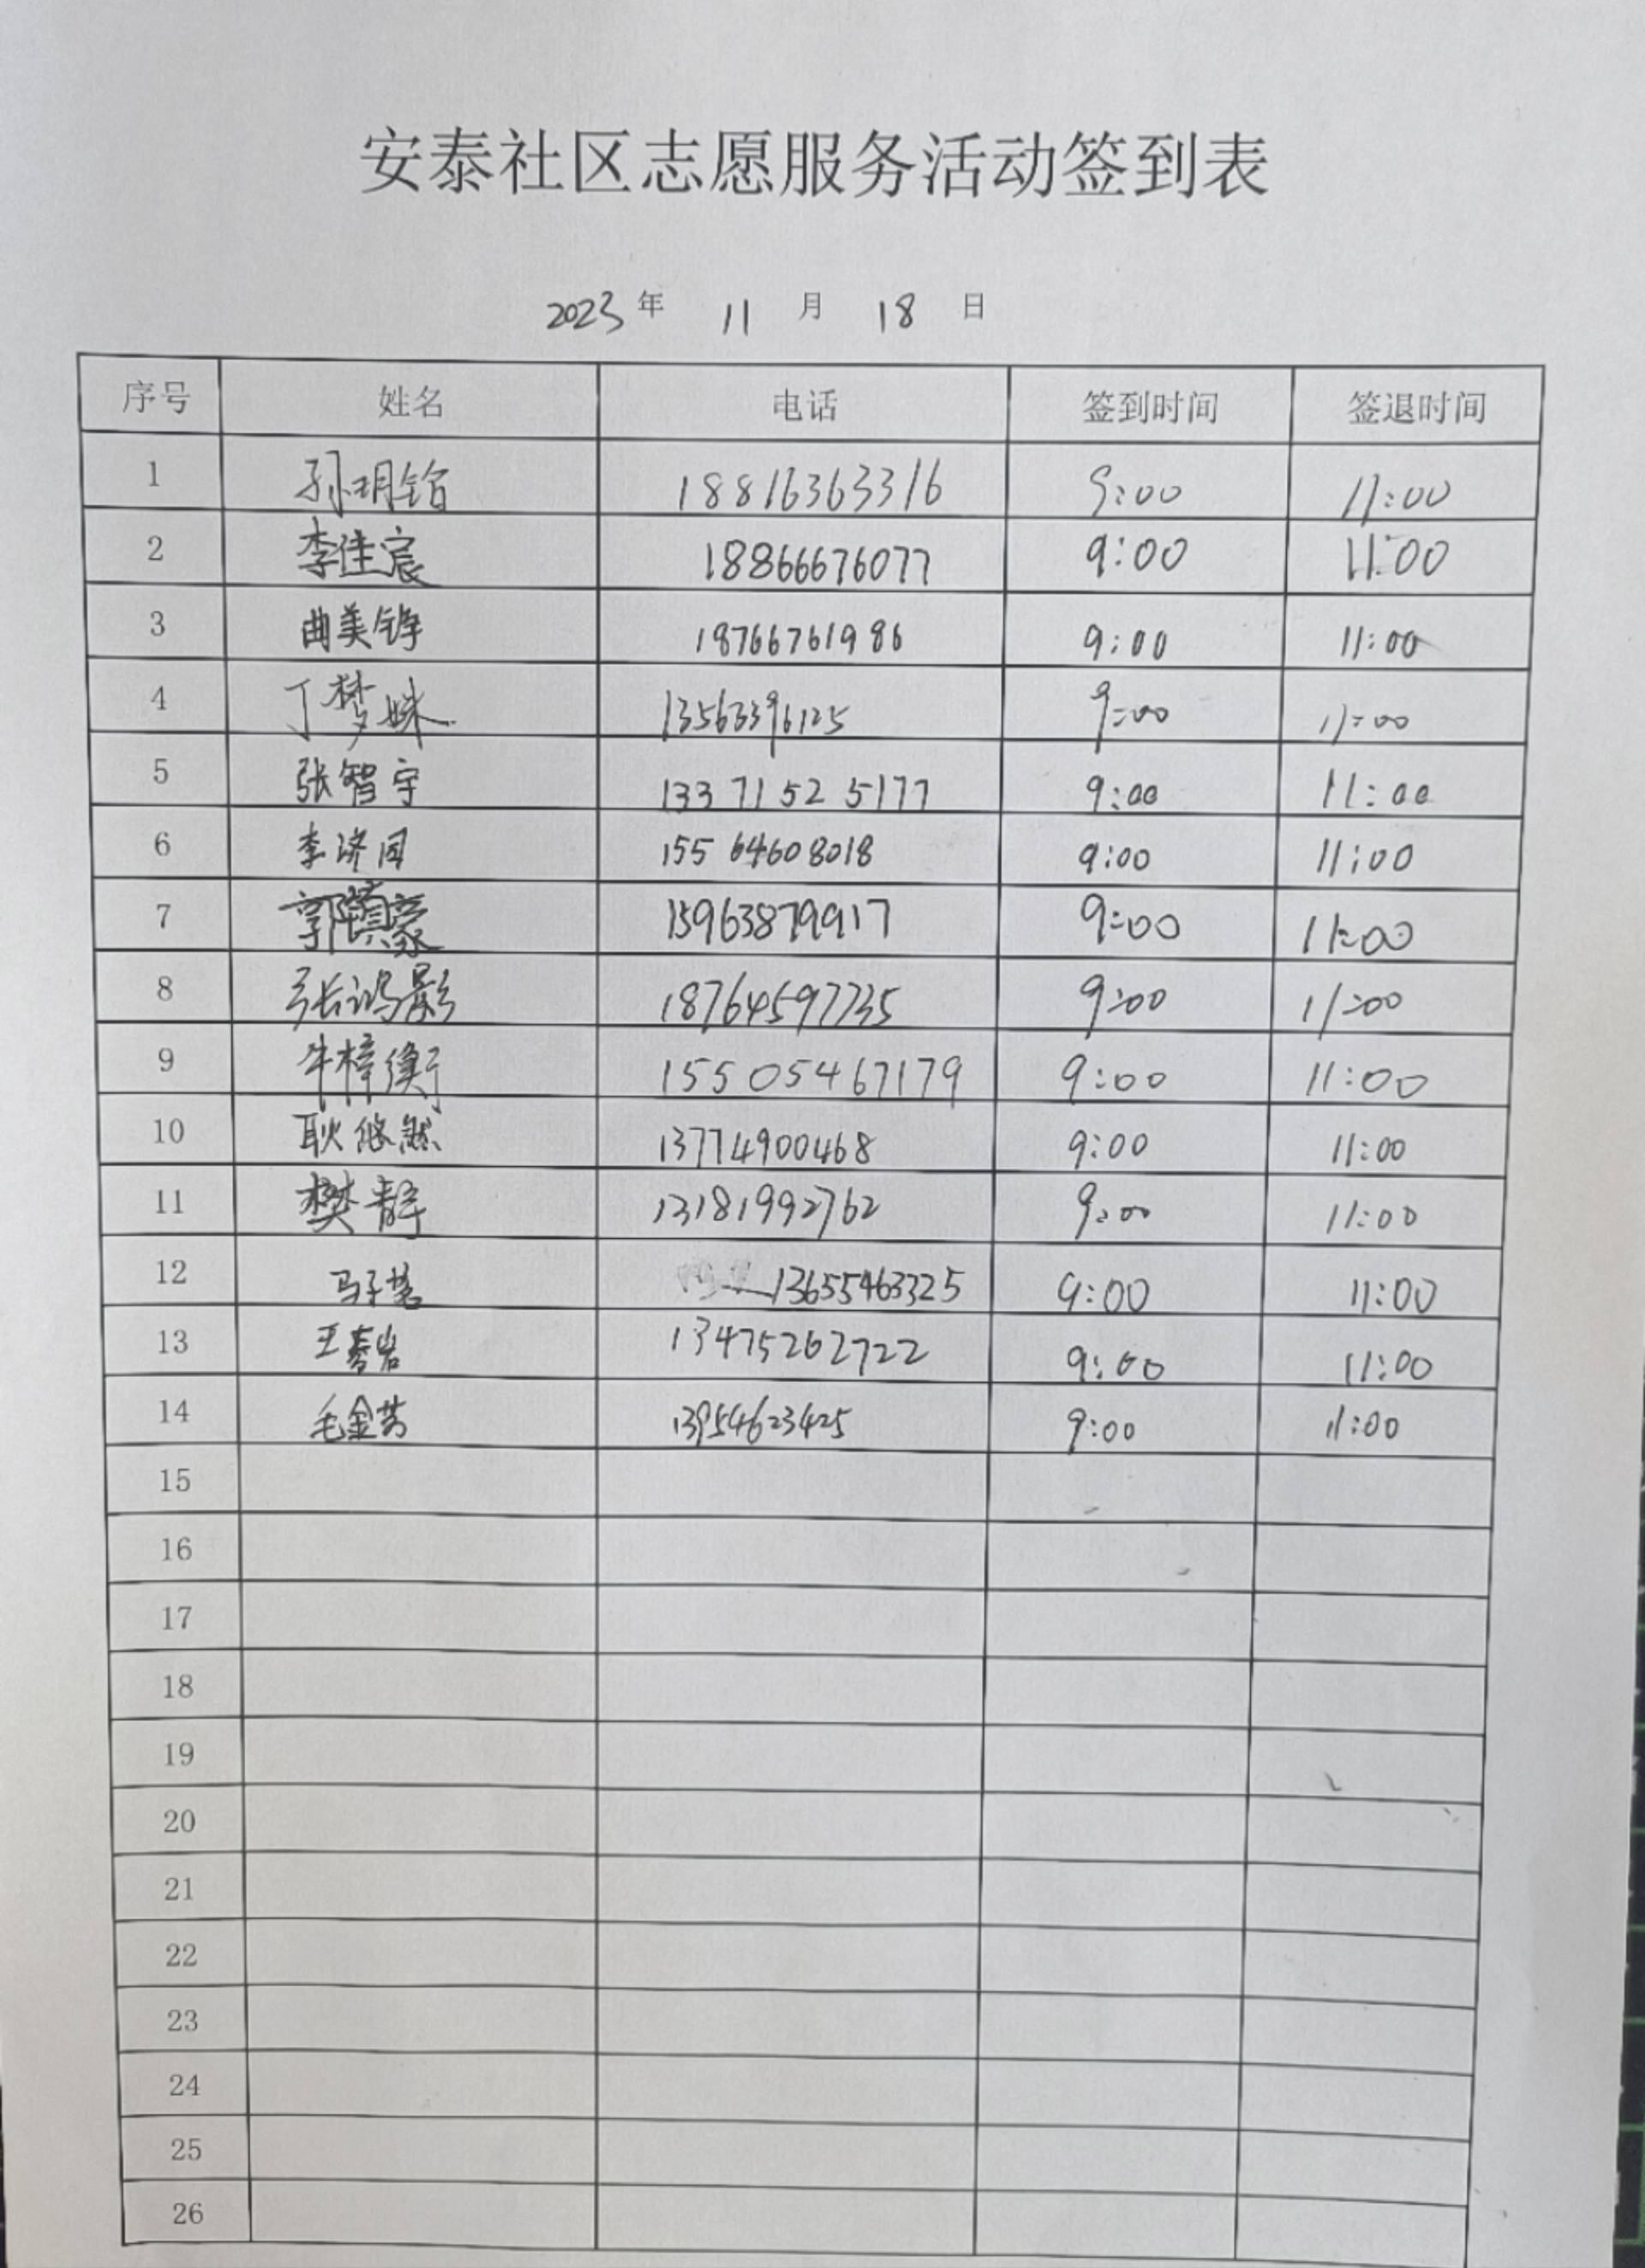 安泰社区志愿服务活动签到表
2023 年 11 月 18 日
序号 姓名 电话 签到时间 签退时间
1 孙玥铂 18816363316 9:00 11:00
2 李佳宸 18866676077 9:00 11:00
3 曲美铮 18766761986 9:00 11:00
4 丁梦姝 13563396125 9:00 11:00
5 张智宇 133 7152 5177 9:00 11:00
6 李济同 155 64608018 9:00 11:00
7 郭慎豪 15963879917 9:00 11:00
8 张鸿影 18764597735 9:00 11:00
9 牛梓衡 155 05467179 9:00 11:00
10 耿悠然 13774900468 9:00 11:00
11 樊静 13181992762 9:00 11:00
12 马子茗 13655463325 9:00 11:00
13 王春岩 13475262722 9:00 11:00
14 毛金芳 13954623425 9:00 11:00
15
16
17
18
19
20
21
22
23
24
25
26